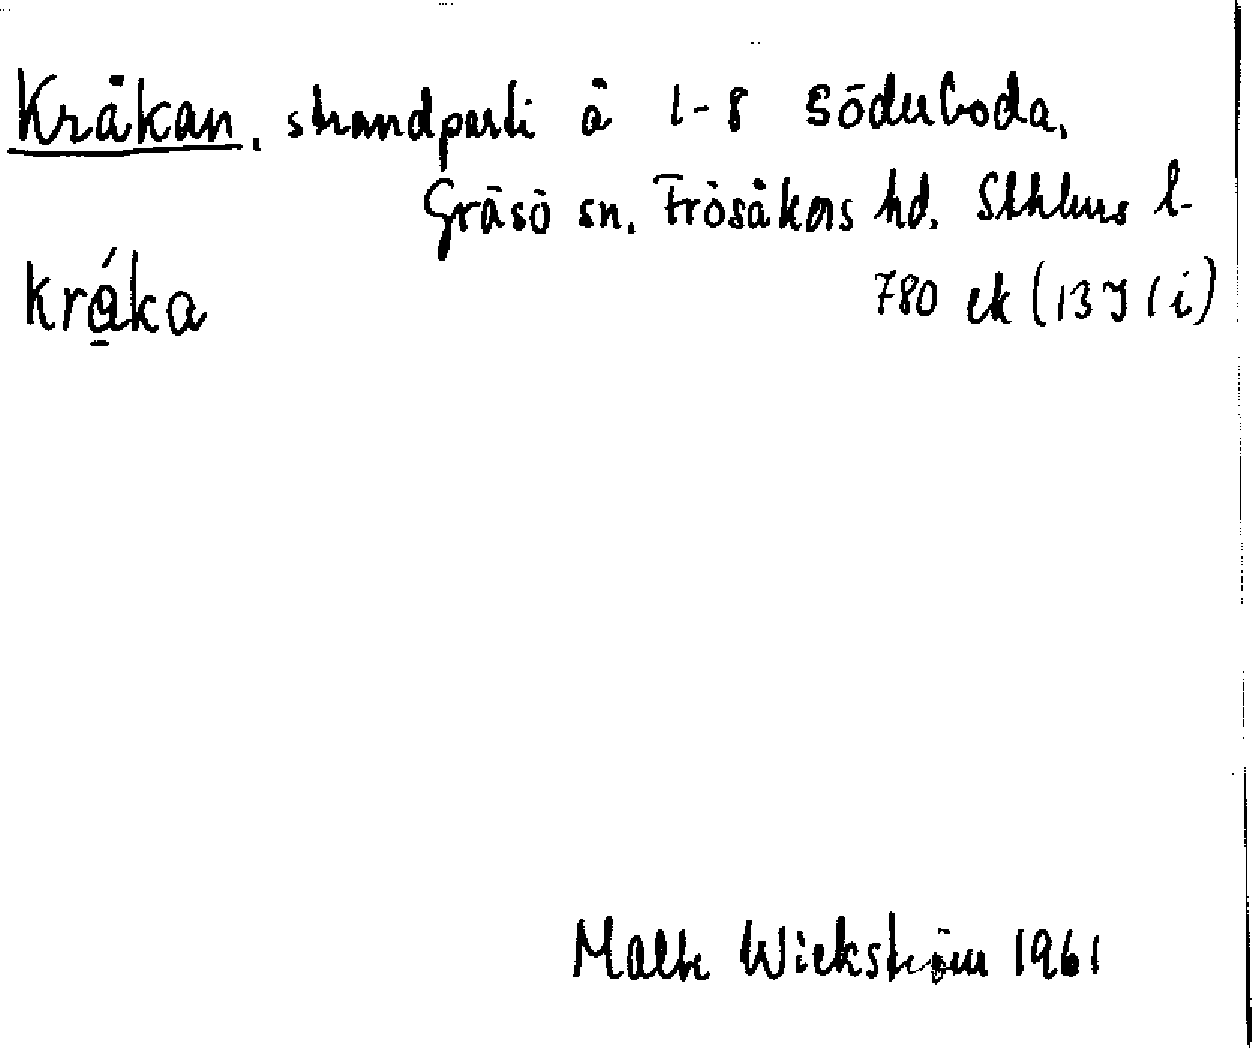 Kråkan, strandparti å 1-8 Söderboda,
Gräsö sn. Frösåkers hd. Sthlms l-
krǻ̱ka 780 ek (13I1i)
Malte Wickström 1961